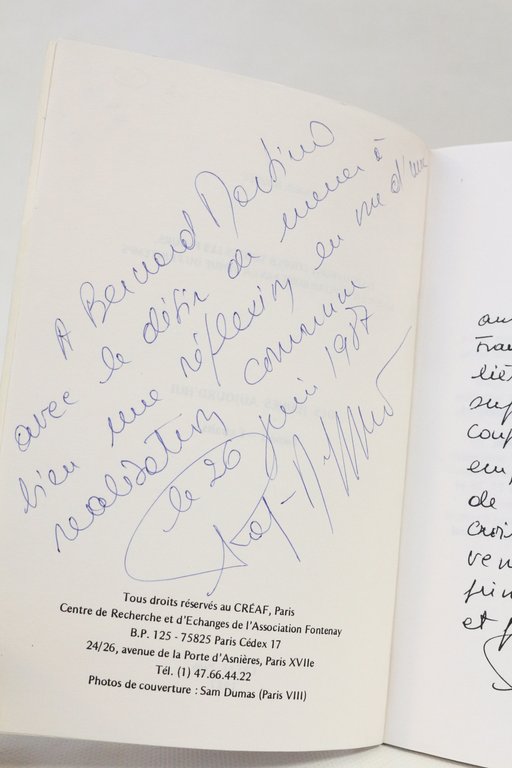 A Bernard Martino
avec le désir de mener à
bien une réflexion en vue d'une
réalisation commune
le 26 juin 1987
Tous droits réservés au CRÉAF, Paris
Centre de Recherche et d'Echanges de l'Association Fontenay
B.P. 125 - 75825 Paris Cédex 17
24/26, avenue de la Porte d'Asnières, Paris XVIIe
Tél. (1) 47.66.44.22
Photos de couverture : Sam Dumas (Paris VIII)
de
et